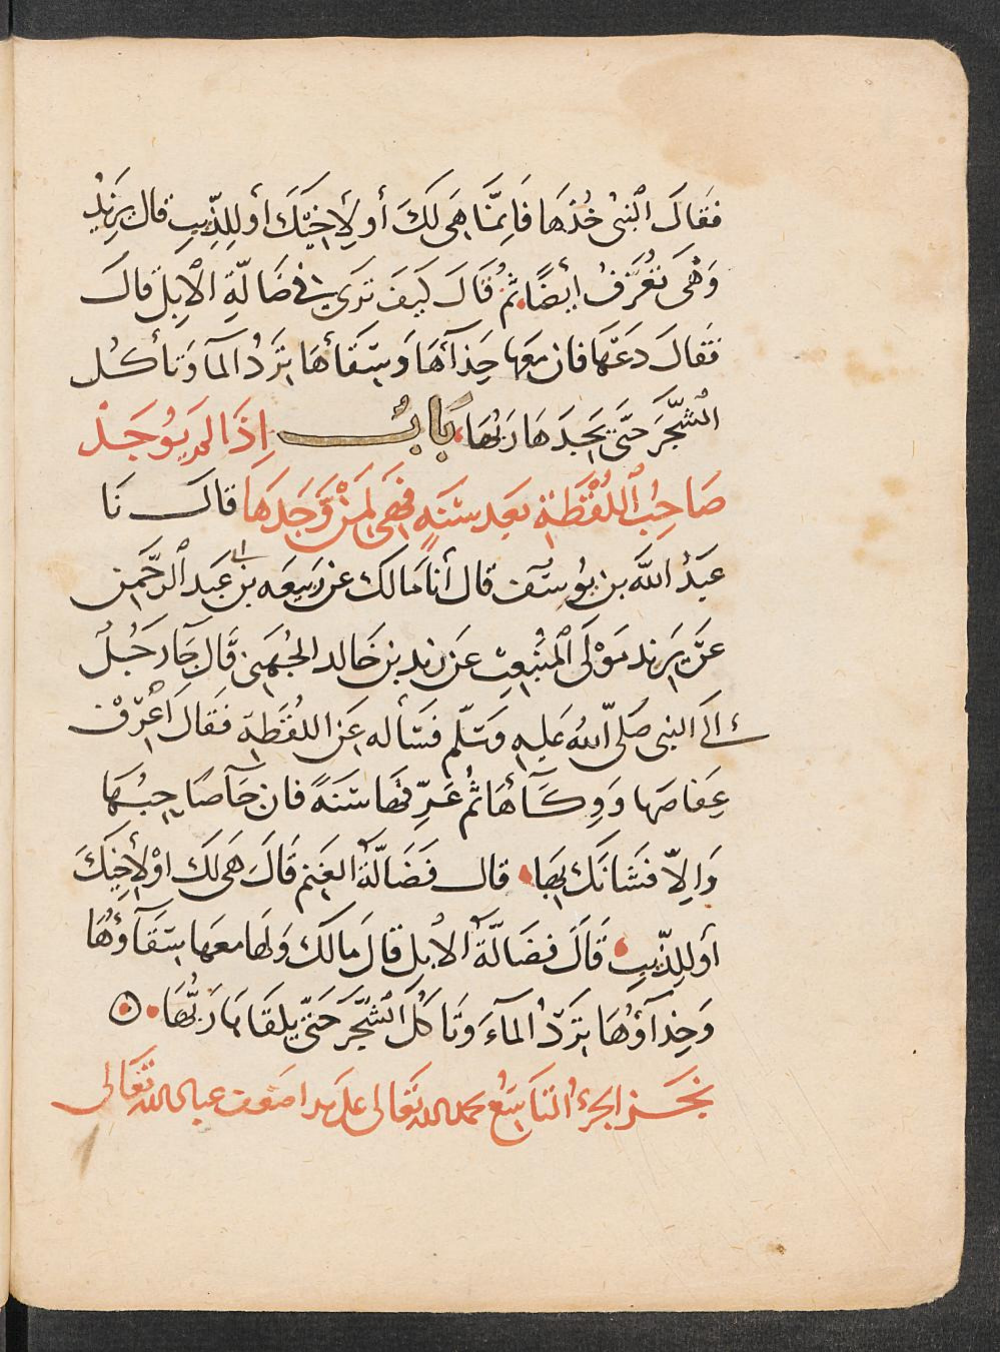 فَقَالَ النَّبىُ خُذهَا فَاِنمَّا هَى لَكَ أو لِأَخِيْكَ أو لِلذِّيبِ قال يَزِيْدُ
وَهْىَ تُعُرَّفُ أيضًا ثُمُ قَالَ كَيفَ تَرَى في ضَالَّةِ الاِبِلِ قالَ
فَقَالَ دَعْهَا فان معَها حِذَآهَا وَسِقَأهَا تَردُ المآ وَتأكل
الشَّجَرَ حتَّى يَجدَهَا رَبُّهَا بَابُ اِذَا لم يُوجَدْ
صَاحِبُ اللُقْطَةِ بَعدَ سَنَةٍ فَهْىَ لِمَنْ وَّجَدَهَا قالَ نَا
عَبدُ اللَّه بن يُوسُف قال أنَا مَالك عن رَبيعَه بن ابى عَبدِ الرَّحْمن
عَنْ يَزيد مَوْلَى المنْبَعِثِ عَن زيد بن خَالد الجُهَنِى قَال جَآ رَجُلٌ
الَى النبى صَلى اللَّهُ عَليهِ وَسَلّم فسَأله عَنِ اللُقطَةِ فَقَالَ اعْرِفْ
عِفَاصَها وَوِكَآأهَا ثُمُ عَرِّفهَا سَنَةً فان جَآ صَاحِبُهَا
وَالِاّ فشَانَكَ بِهَا قال فَضَالَّةُ الغَنَمِ قَالَ هَى لَكَ اوْ لِأَخِيكَ
أو للِذِّيبِ قَالَ فضَالَّةُ الاِبلِ قالَ مَالكَ وَلهَا معَها سِقَآؤُهَا
وَحِذَآؤُهَا تَرِدُ المآءَ وَتَأكُلُ الشَّجَرَ حَتىّ يلقَاهَا رَبُّهَا
نجَز الجزءُ التَاسِعُ بحمدِ اللهِ تَعَالى عَلى يد اضعف عباد الله تَعَالى